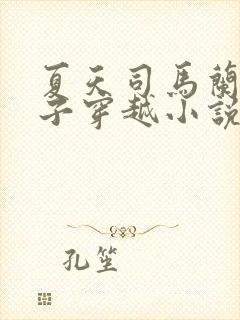 夏天司馬蘭
子穿越小說
孔笙